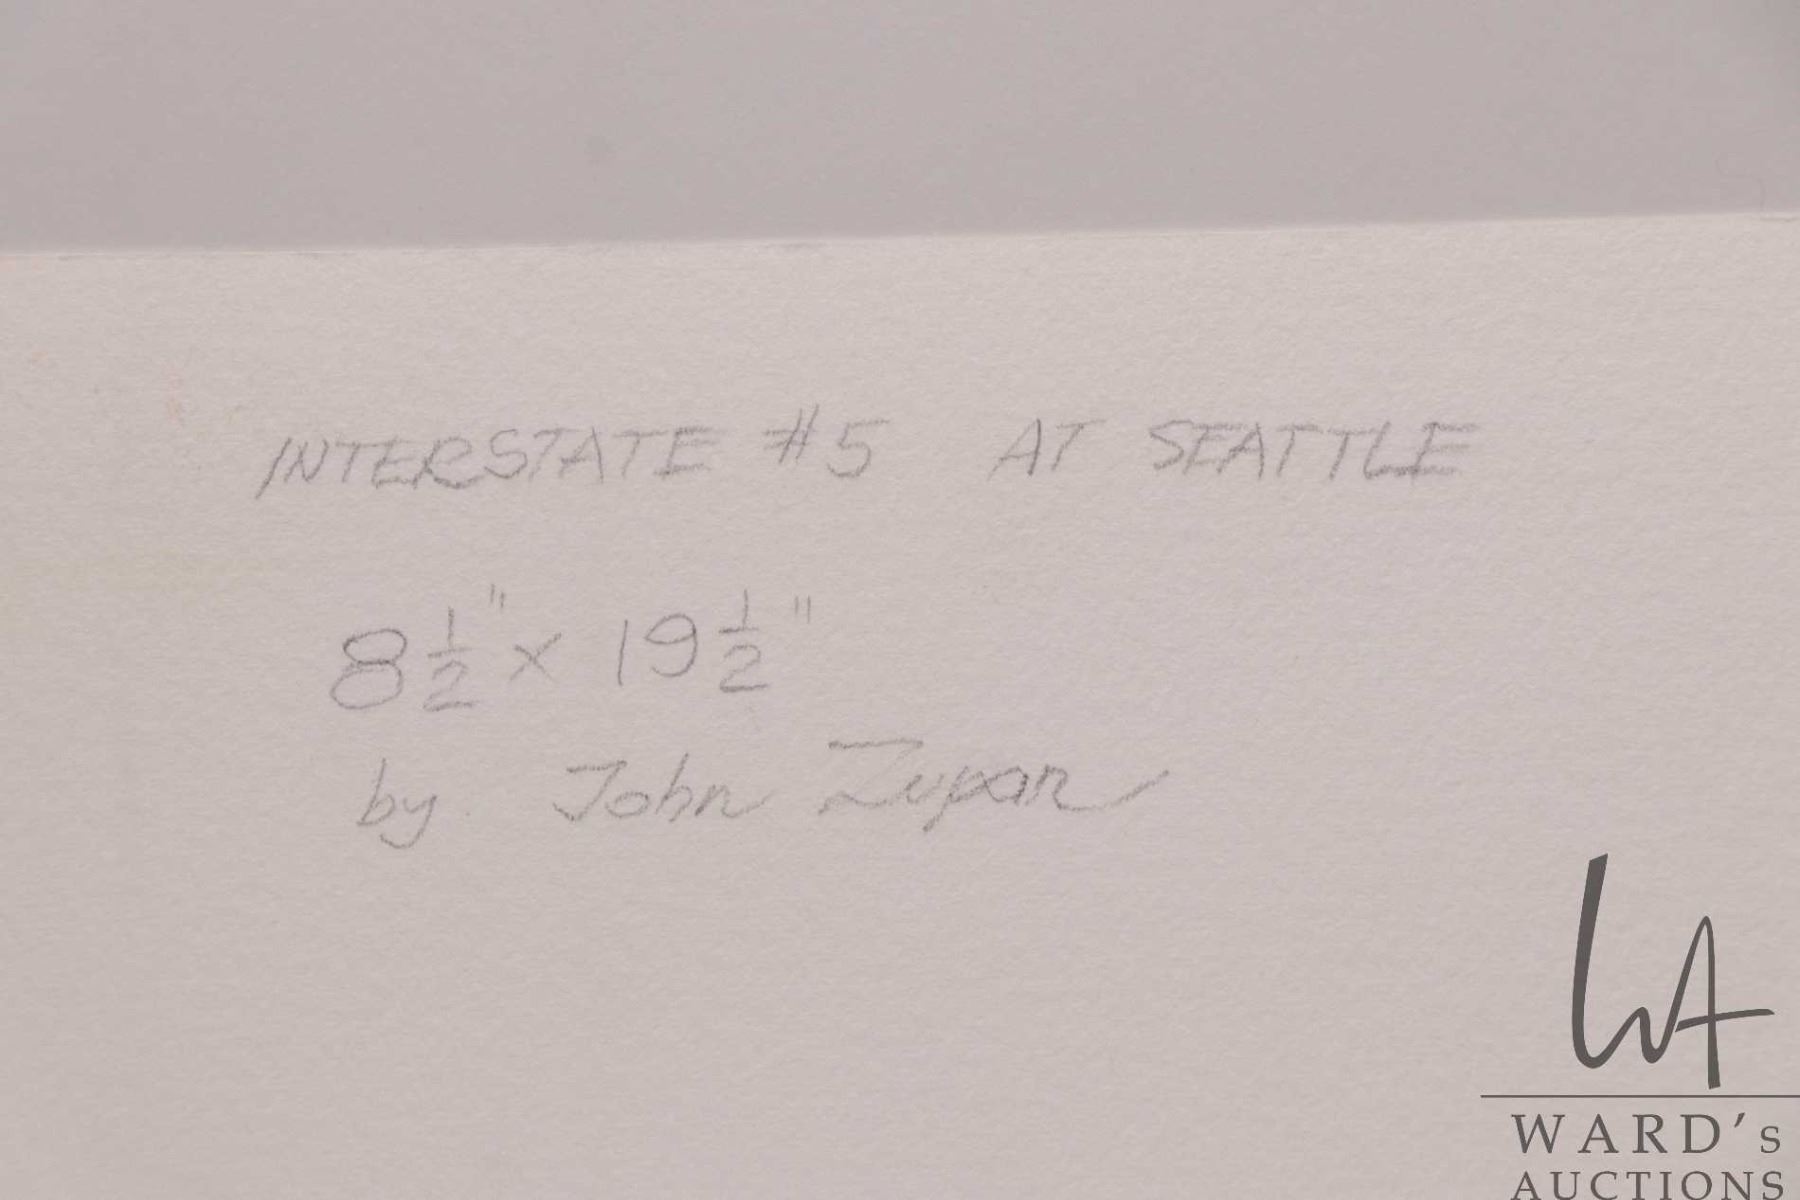 INTERSTATE #5 AT SEATTLE
8 1/2" x 19 1/2"
by John Zupan
WA
WARD's
AUCTIONS